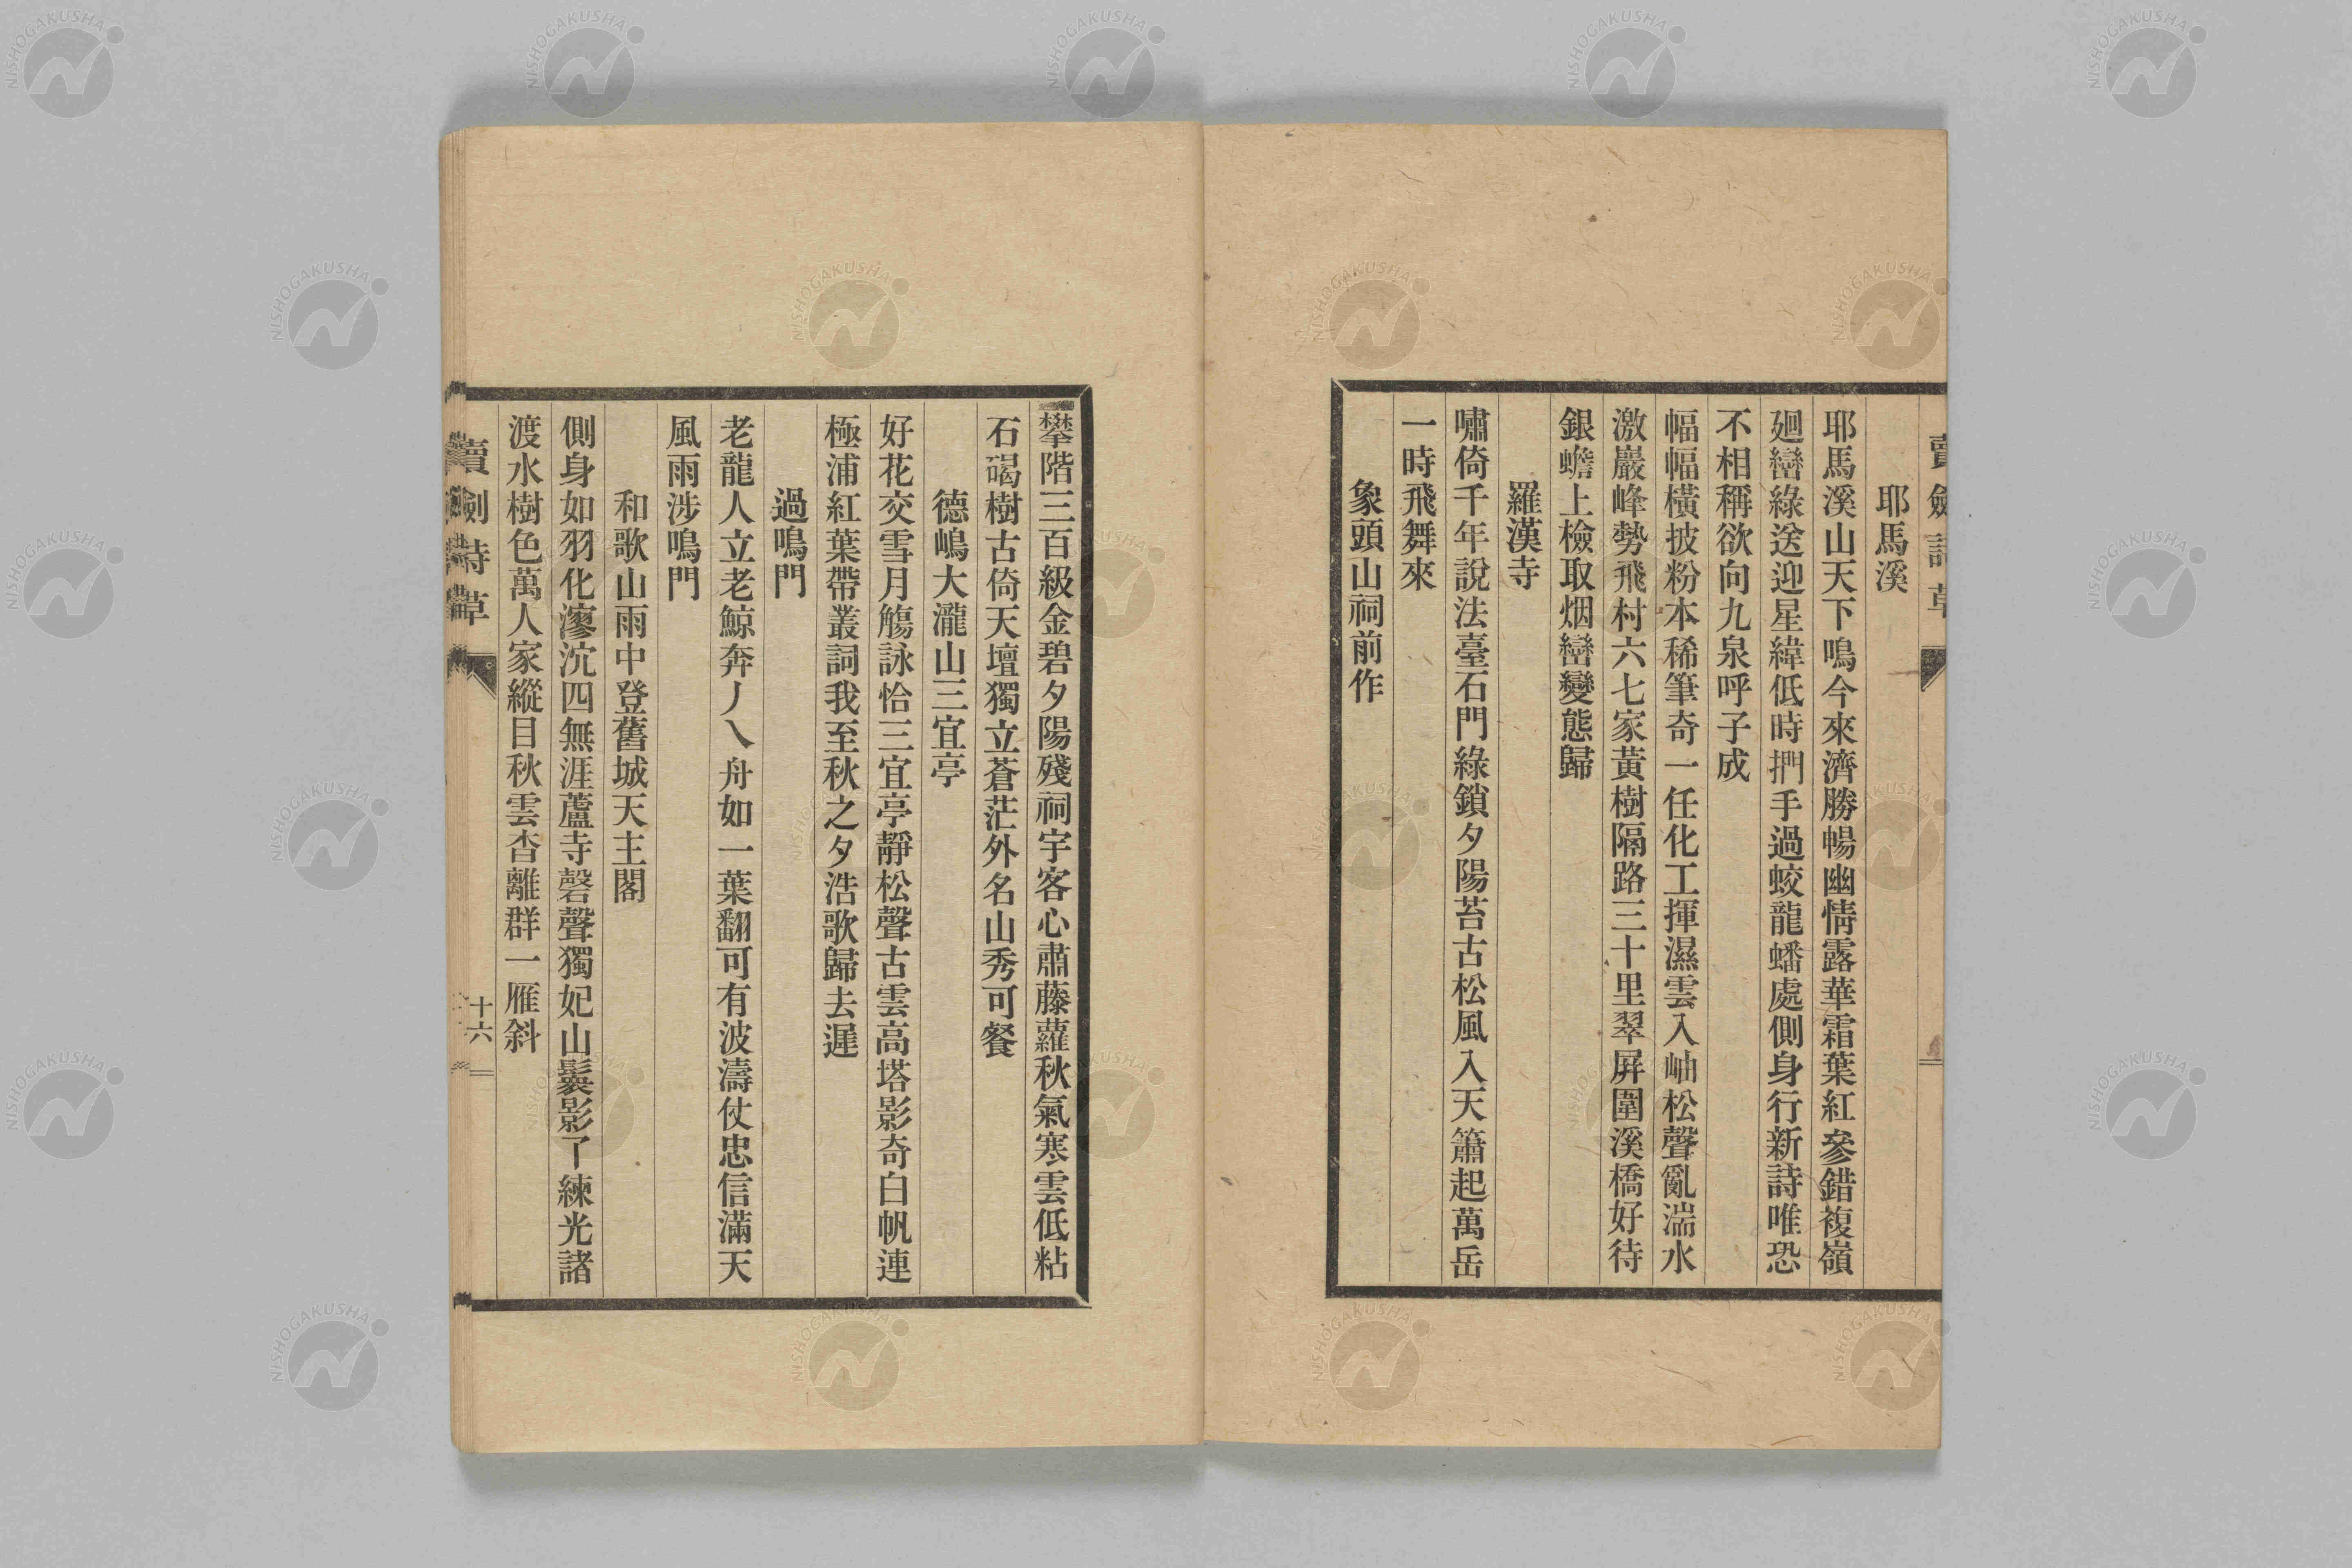 賣劍詩草
耶馬溪
耶馬溪山天下鳴今來濟勝暢幽情露華霜葉紅參錯複嶺
廻巒綠送迎星緯低時捫手過蛟龍蟠處側身行新詩唯恐
不相稱欲向九泉呼子成
幅幅橫披粉本稀筆奇一任化工揮濕雲入岫松聲亂湍水
激巖峰勢飛村六七家黃樹隔路三十里翠屛圍溪橋好待
銀蟾上檢取烟巒變態歸
羅漢寺
嘯倚千年說法臺石門綠鎖夕陽苔古松風入天簫起萬岳
一時飛舞來
象頭山祠前作
攀階三百級金碧夕陽殘祠宇客心肅藤蘿秋氣寒雲低粘
石碣樹古倚天壇獨立蒼茫外名山秀可餐
德嶋大瀧山三宜亭
好花交雪月觴詠恰三宜亭靜松聲古雲高塔影奇白帆連
極浦紅葉帶叢詞我至秋之夕浩歌歸去遲
過鳴門
老龍人立老鯨奔丿乀舟如一葉翻可有波濤仗忠信滿天
風雨涉鳴門
和歌山雨中登舊城天主閣
側身如羽化漻沆四無涯蘆寺磬聲獨妃山鬟影了練光諸
渡水樹色萬人家縱目秋雲杳離群一雁斜
賣劍詩草
十六
NISHOGAKUSHA